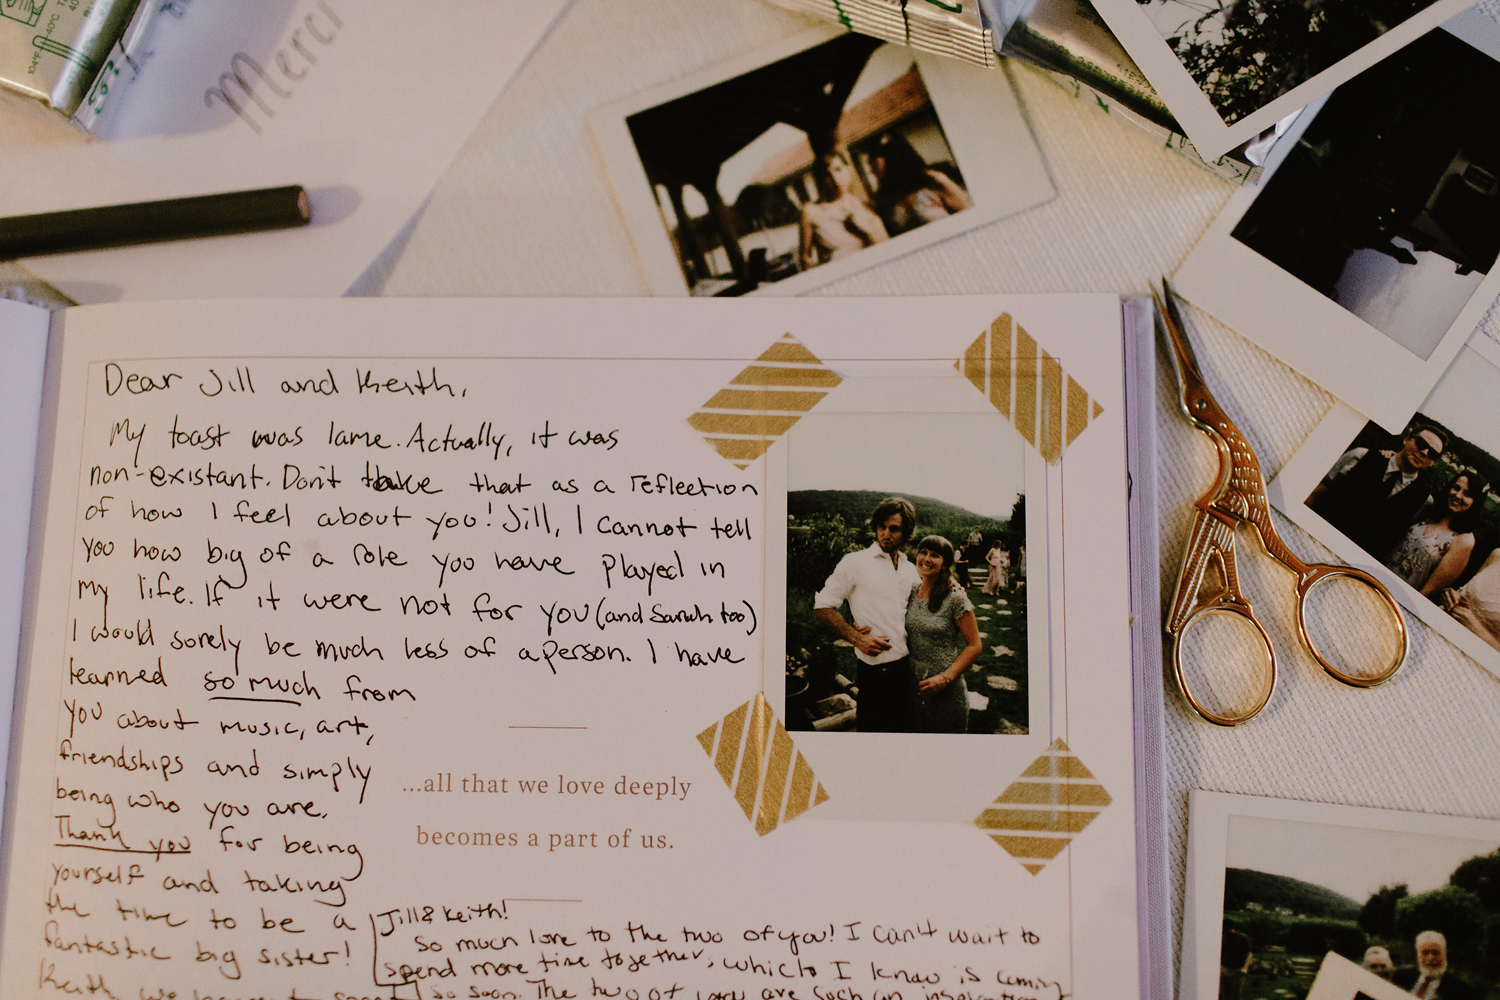 Merci
104°F
40°C
Dear Jill and Keith,
My toast was lame. Actually, it was
non-existant. Don't take that as a reflection
of how I feel about you! Jill, I cannot tell
you how big of a role you have played in
my life. If it were not for you (and Sarah too)
I would sorely be much less of a person. I have
learned so much from
you about music, art,
friendships and simply
being who you are.
Thank you for being
yourself and taking
the time to be a
fantastic big sister!
Keith, we
...all that we love deeply
becomes a part of us.
Jill & Keith!
So much love to the two of you! I can't wait to
spend more time together, which I know is coming
so soon. The two of you are such an inspiration